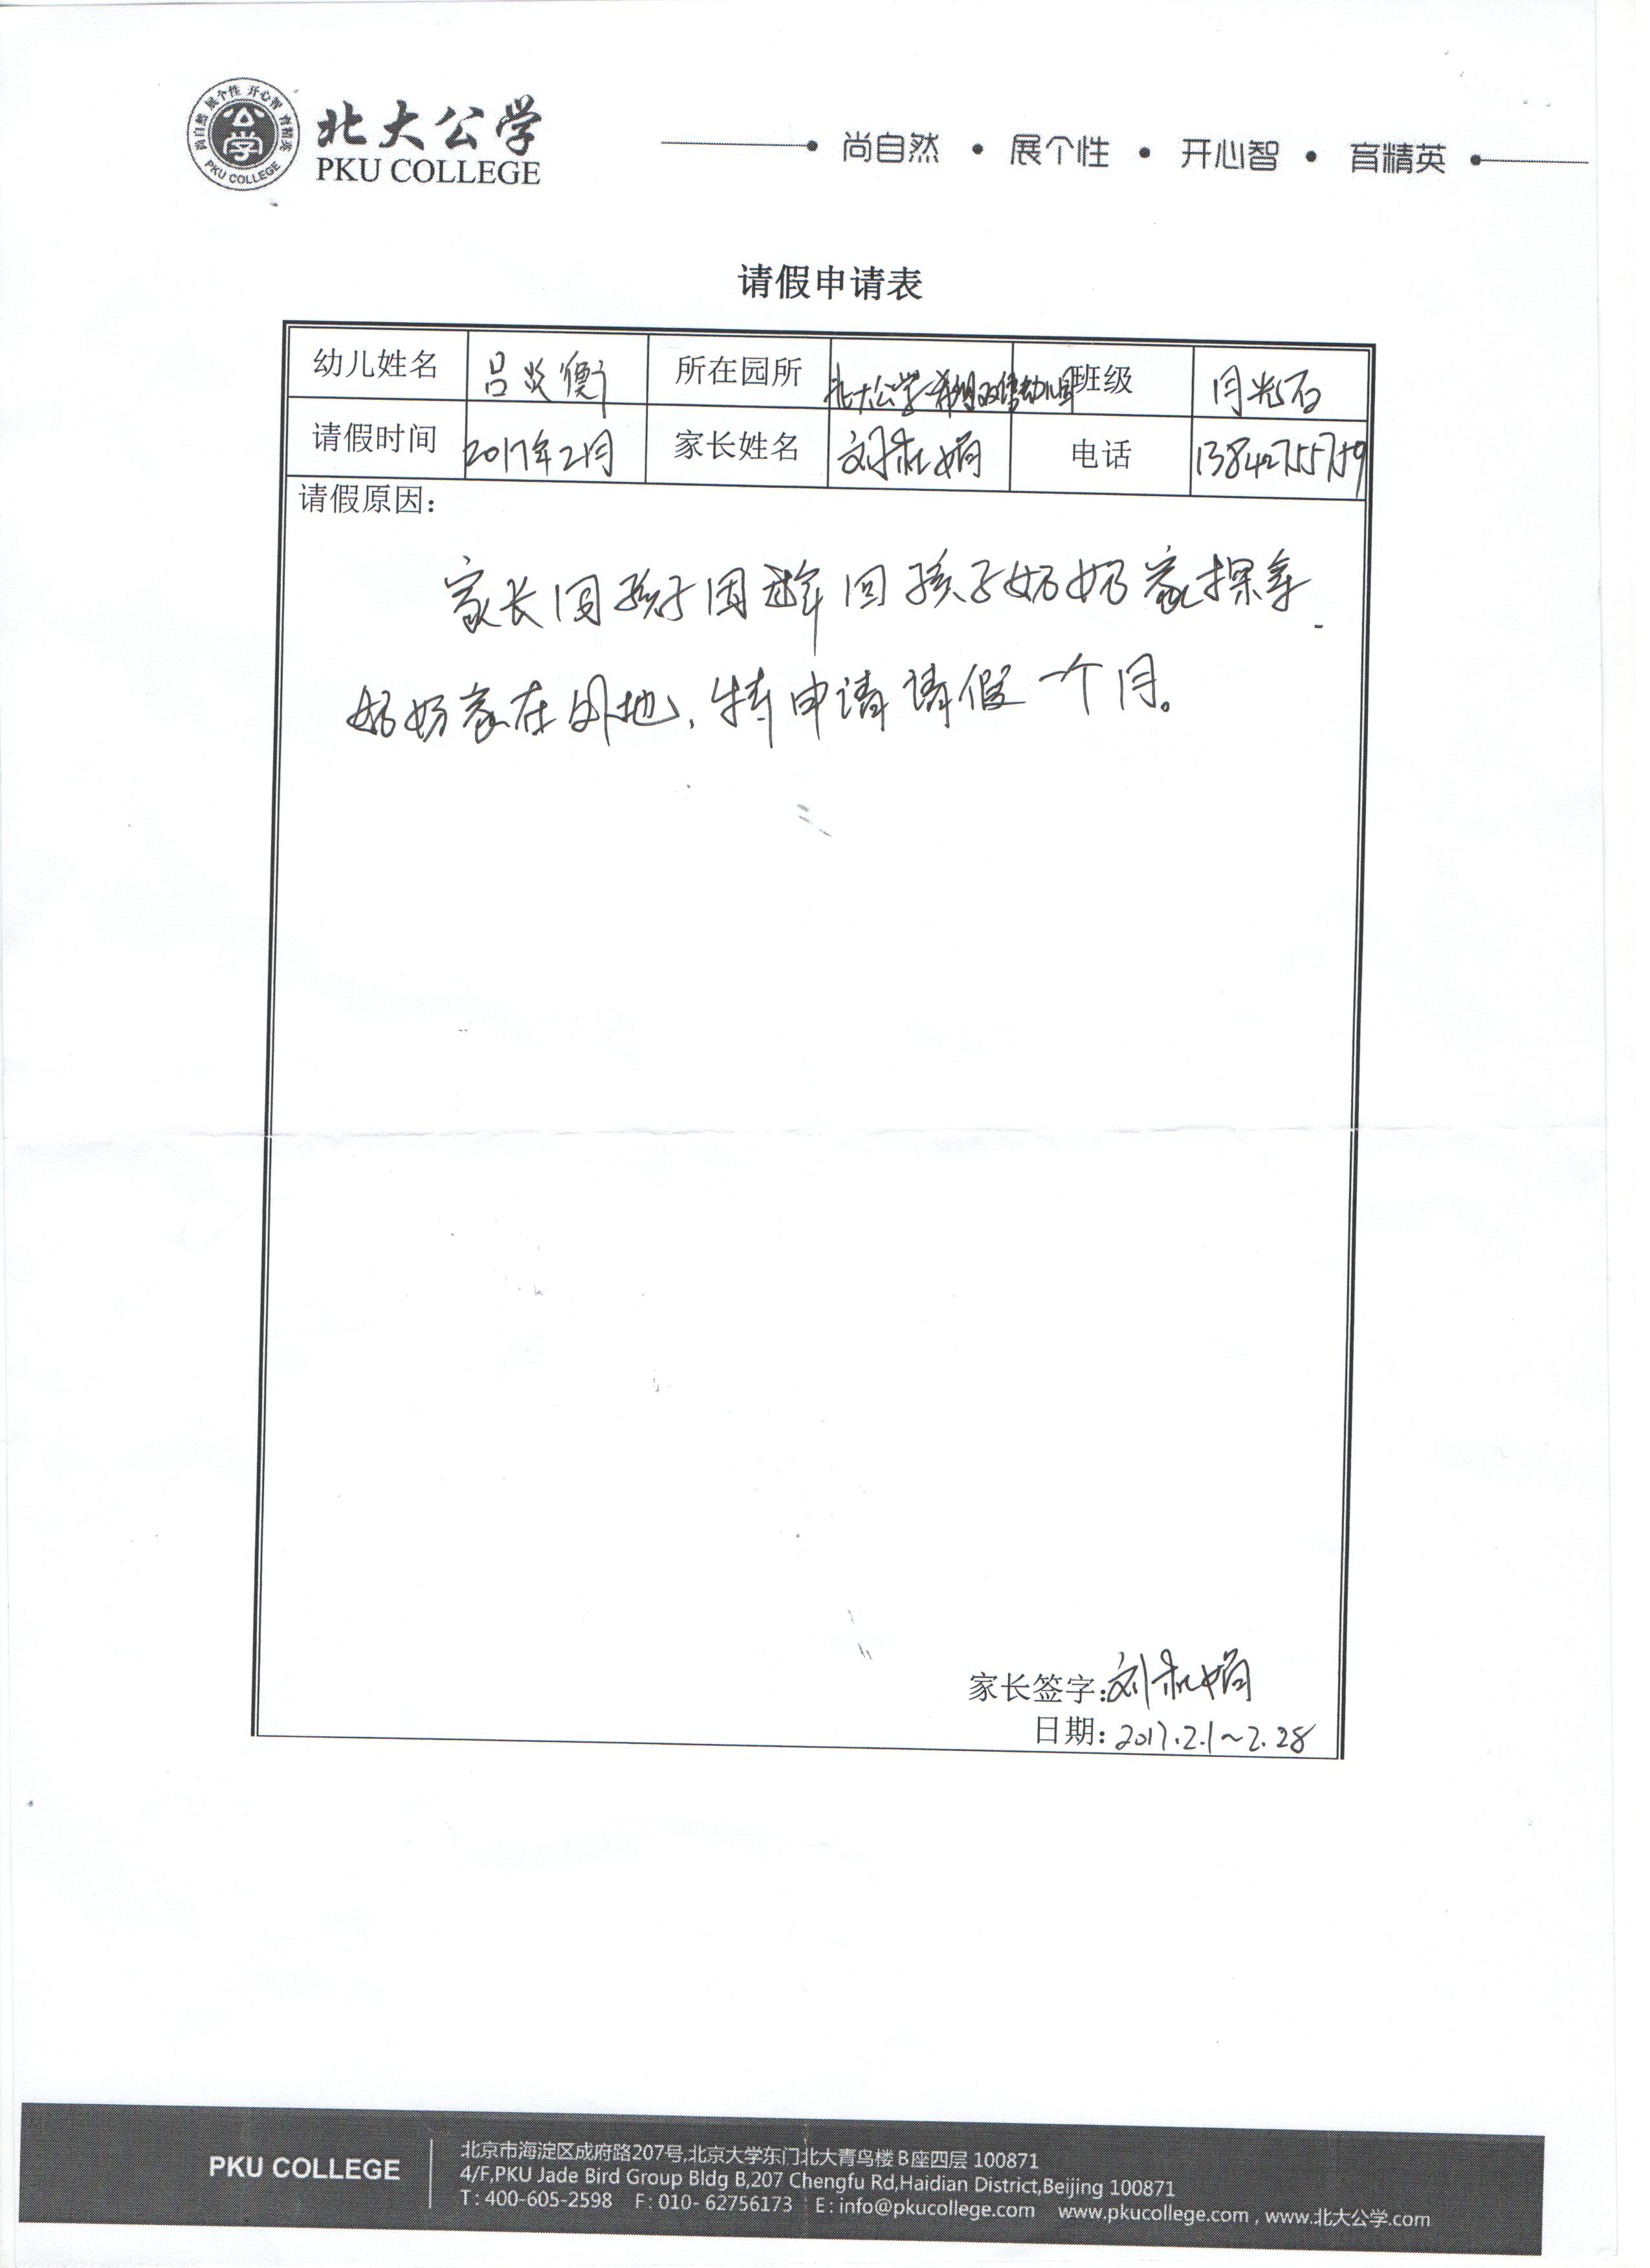 尚自然 展个性 开心智 育精英
公学
PKU COLLEGE
北大公学
PKU COLLEGE
尚自然 • 展个性 • 开心智 • 育精英
请假申请表
幼儿姓名 吕炎衡 所在园所 北大公学希望双语幼儿园 班级 月光石
请假时间 2017年2月 家长姓名 刘 娟 电话
请假原因:
家长因孩子因过年回孩子奶奶家探亲.
奶奶家在外地,特申请请假一个月。
家长签字:刘 娟
日期:2017.2.1~2.28
PKU COLLEGE
北京市海淀区成府路207号,北京大学东门北大青鸟楼B座四层 100871
4/F,PKU Jade Bird Group Bldg B,207 Chengfu Rd,Haidian District,Beijing 100871
T: 400-605-2598 F: 010- 62756173 E: info@pkucollege.com www.pkucollege.com , www.北大公学.com